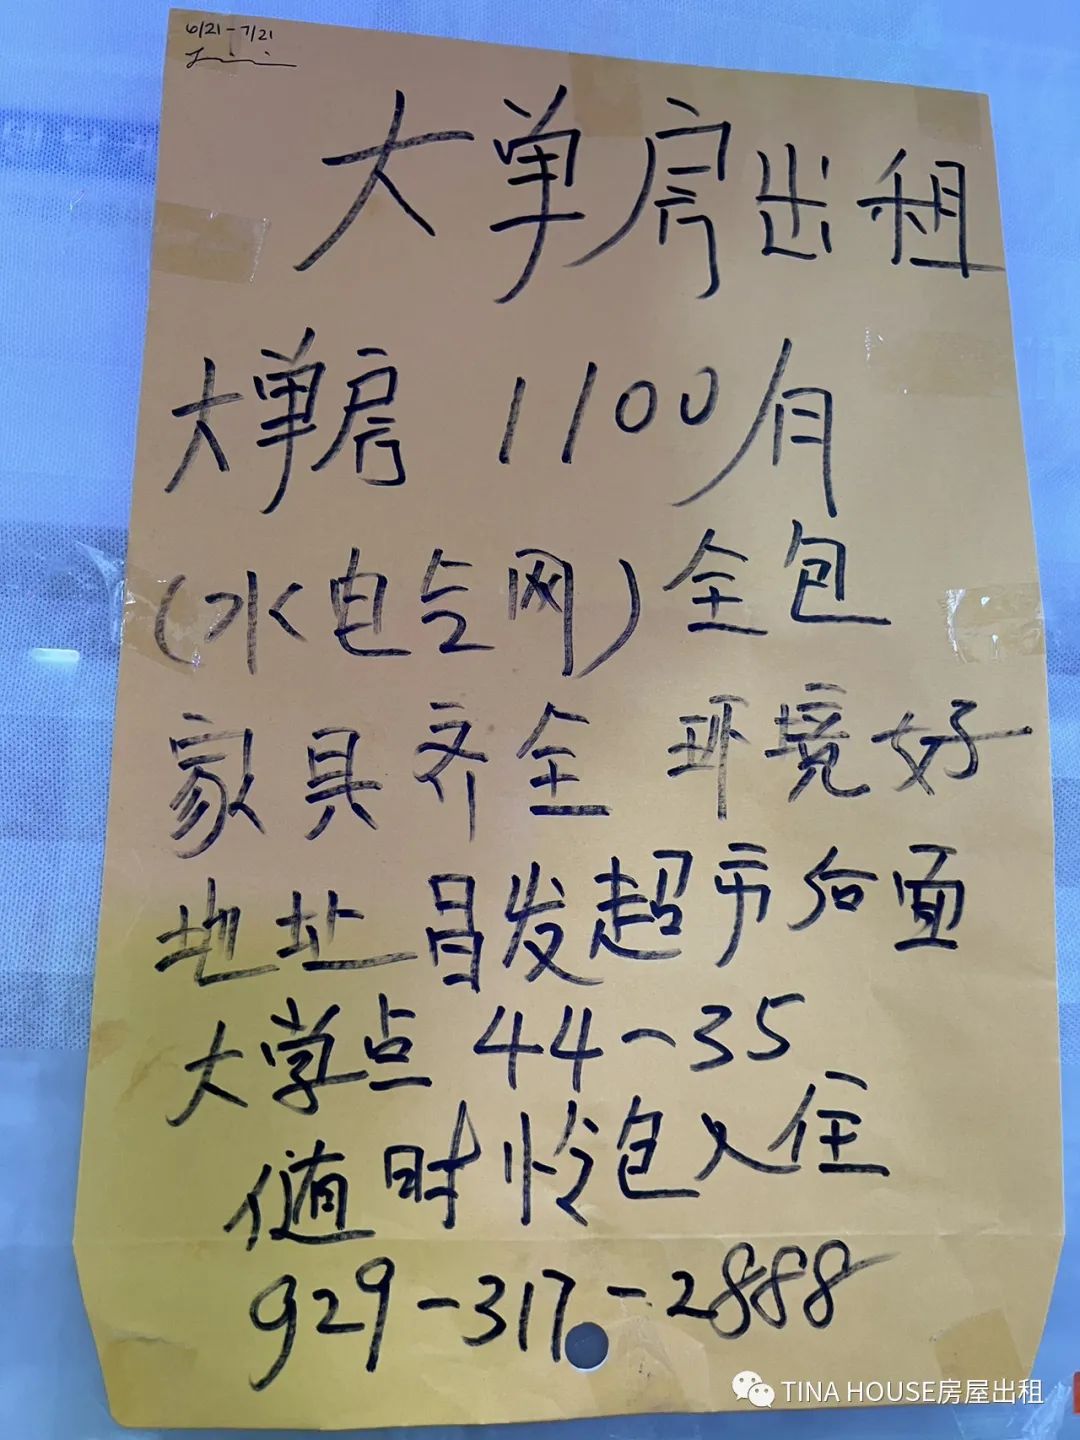 6/21-7/21
大单房出租
大单房 1100/月
(水电气网)全包
家具齐全 环境好
地址 昌发超市后面
大学点 44-35
随时拎包入住
929-317-2888
TINA HOUSE房屋出租